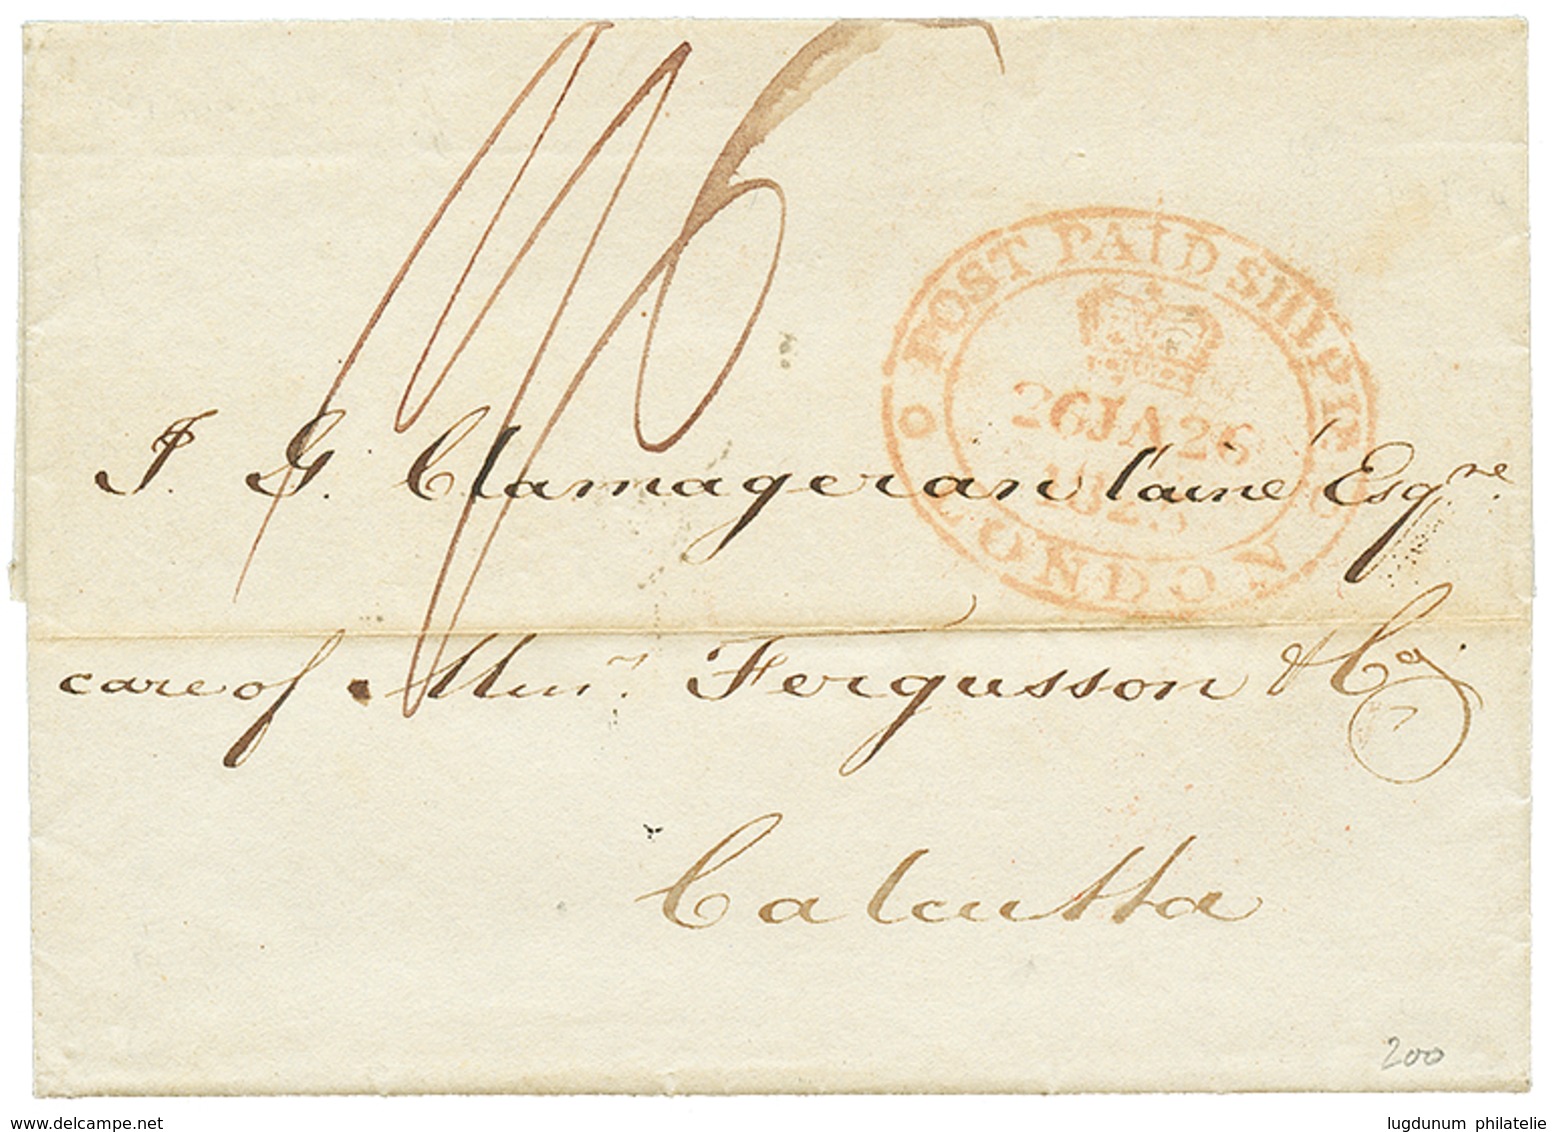 1/16
POST PAID SHIP LE
26 JA 26
182
LONDON
J. G. Clamageran l'ainé Esqre.
care of Messrs. Fergusson & Co
Calcutta
200
delcampe.net
lugdunum philatelie